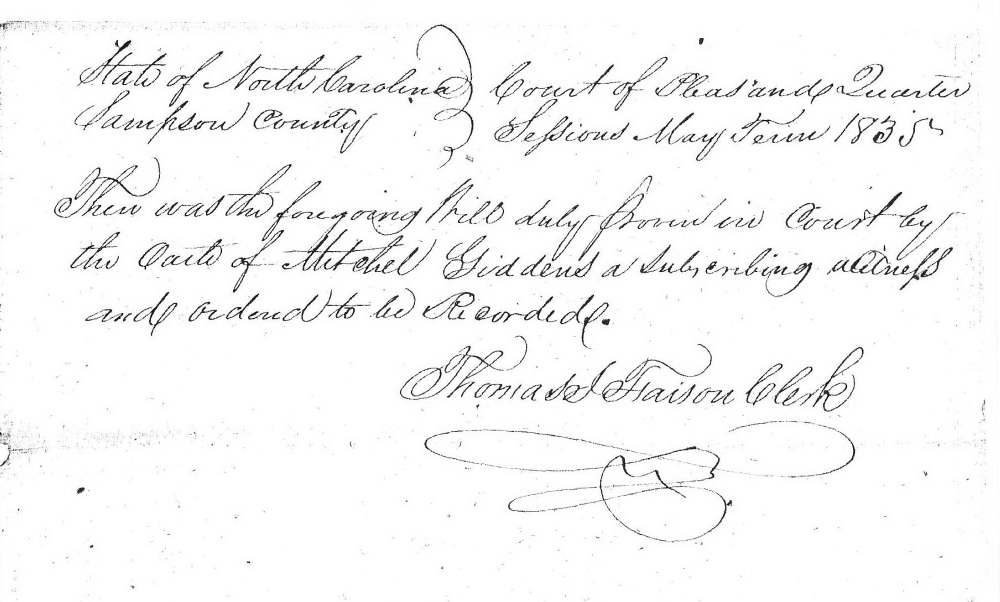 State of North Carolina } Court of Pleas and Quarter
Sampson County } Sessions May Term 1835
Then was the foregoing Will duly Proven in Court by
the Oath of Mitchel Giddens a subscribing witness
and ordered to be Recorded.
Thomas I Faison Clerk